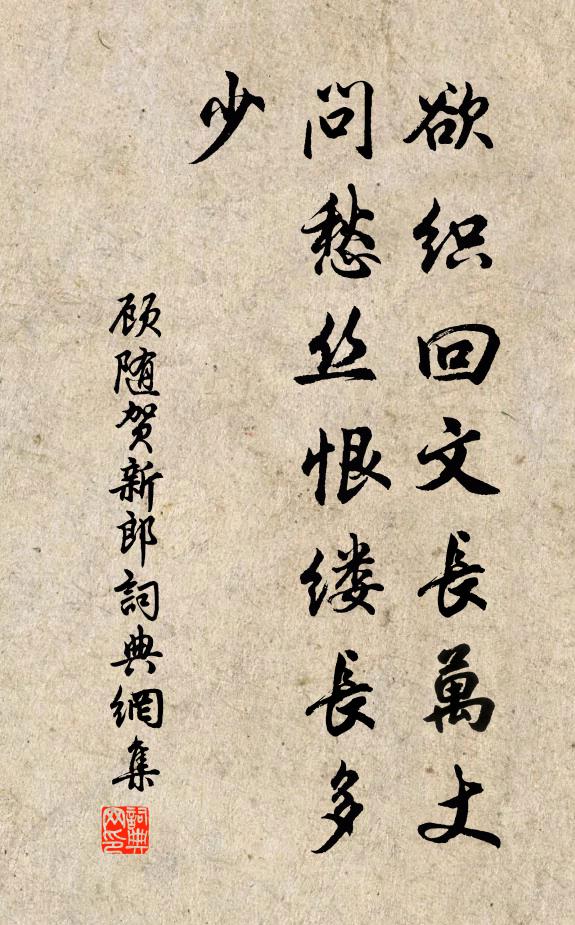 欲织回文長萬丈
问愁丝恨缕長多
少
顾随贺新郎詞典網集
詞典网印